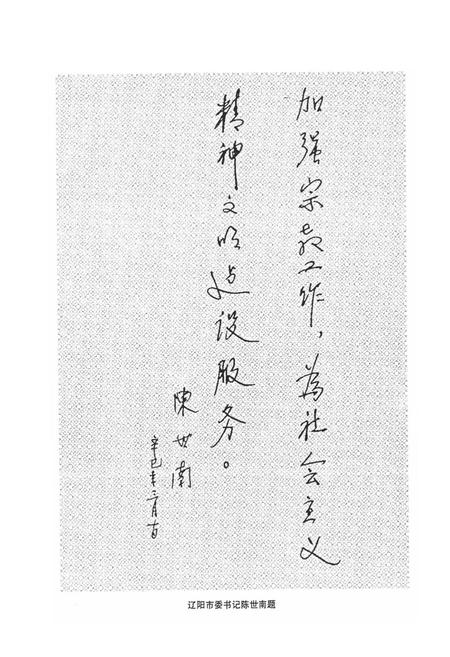 加强宗教工作，为社会主义
精神文明建设服务。
陳世南
辛巳年二月
辽阳市委书记陈世南题